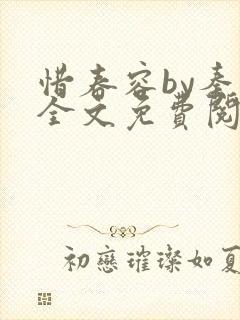 惜春容by秦
全文免費閱
初戀璀璨如夏